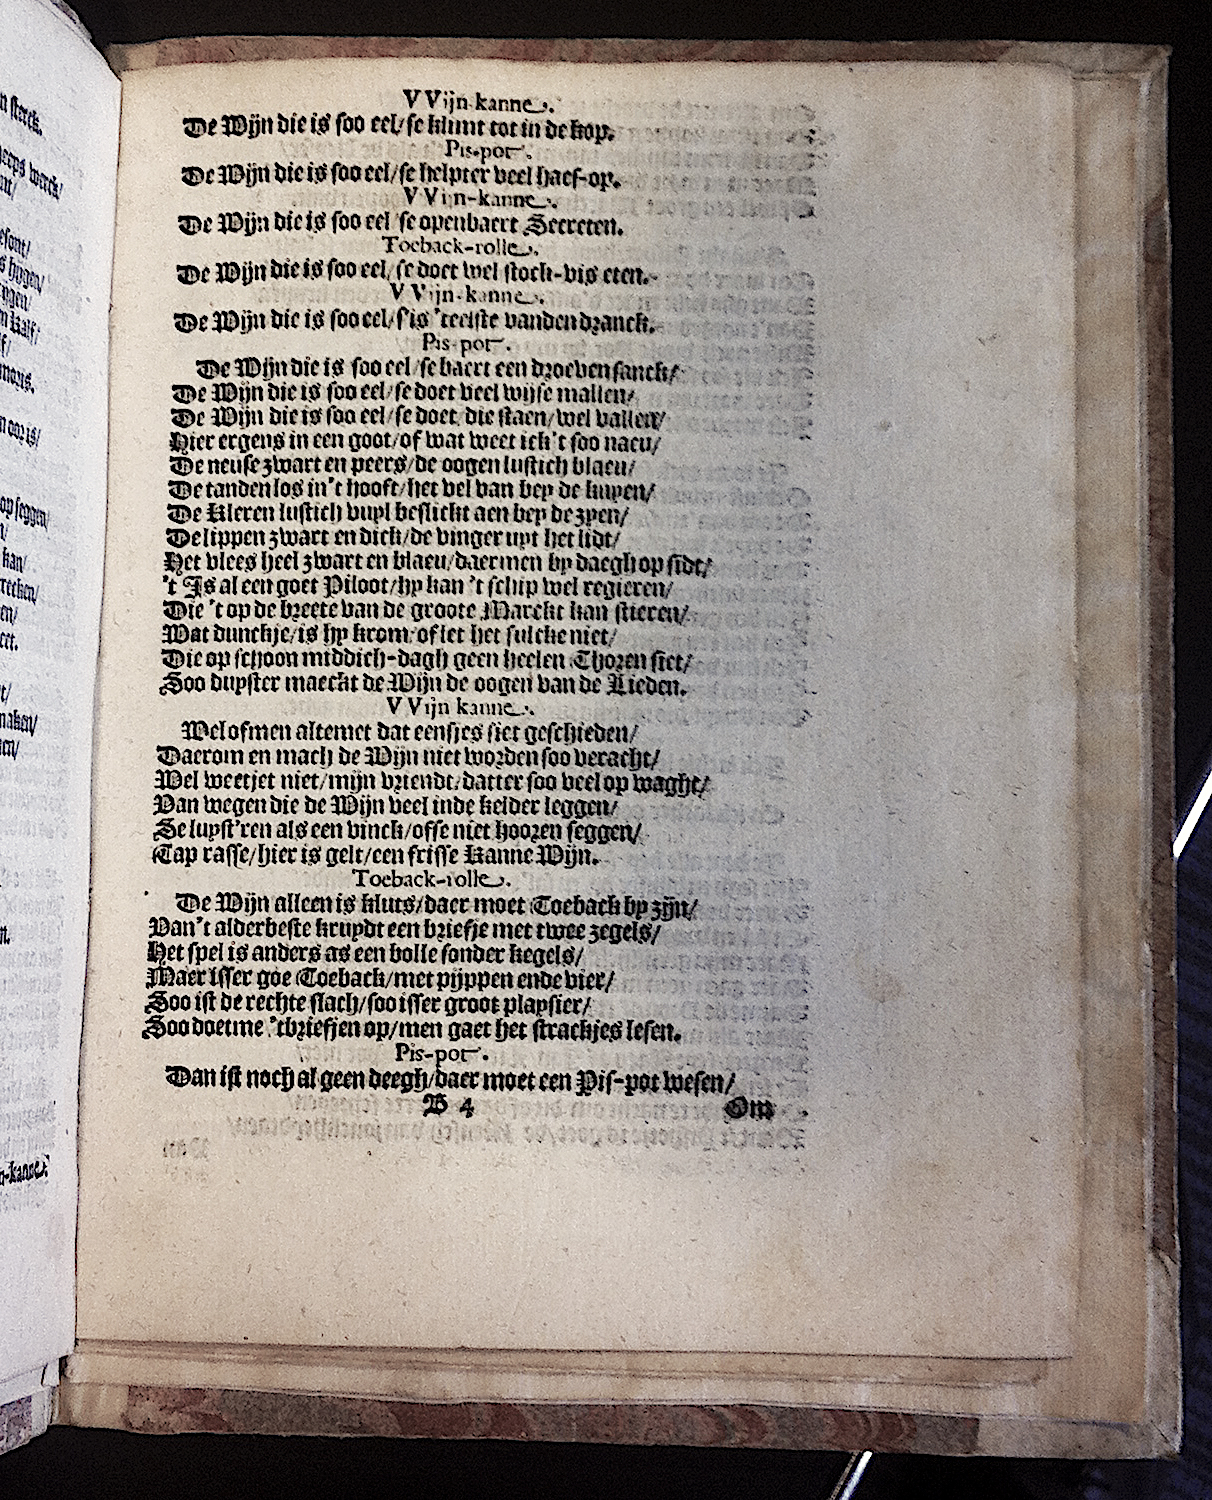 VVijn-kanne.
De Wijn die is soo eel/se klimt tot in de kop.
Pis-pot.
De Wijn die is soo eel/se helpter veel haef-op.
VVijn-kanne.
De Wijn die is soo eel/se openbaert Secreten.
Toeback-rolle.
De Wijn die is soo eel/se doet wel stock-vis eten.
VVijn-kanne.
De Wijn die is soo eel/s'is 'teelste vanden dranck.
Pis-pot.
De Wijn die is soo eel/se baert een droeven sanck/
De Wijn die is soo eel/se doet veel wijse mallen/
De Wijn die is soo eel/se doet/die staen/wel vallen/
Hier ergens in een goot/of wat weet ick't soo naeu/
De neuse zwart en peers/de oogen lustich blaeu/
De tanden los in't hooft/het vel van bey de kuyen/
De Kleren lustich vuyl beslickt aen bey de zyen/
De lippen zwart en dick/de vinger uyt het lidt/
Het vlees heel zwart en blaeu/daermen by daegh op sidt/
't Is al een goet Piloot/hy kan 't schip wel regieren/
Die 't op de breete van de groote Marckt kan stieren/
Wat dunckje/is hy krom/of let het sulcke niet/
Die op schoon middich-dagh geen heelen Thoren siet/
Soo duyster maeckt de Wijn de oogen van de Lieden.
VVijn kanne.
Wel ofmen altemet dat eensjes siet geschieden/
Daerom en mach de Wijn niet worden soo veracht/
Wel weetjet niet/mijn vriendt/datter soo veel op waght/
Van wegen die de Wijn veel inde kelder leggen/
Se luyst'ren als een vinck/ofse niet hooren seggen/
Tap rasse/hier is gelt/een frisse Kanne Wijn.
Toeback-rolle.
De Wijn alleen is kluts/daer moet Toeback by zijn/
Van't alderbeste kruydt een briefje met twee zegels/
Het spel is anders as een bolle sonder kegels/
Maer isser goe Toeback/met pijppen ende vier/
Soo ist de rechte slach/soo isser groot playsier/
Soo doetme 'tbriefjen op/men gaet het strackjes lesen.
Pis-pot.
Dan ist noch al geen deegh/daer moet een Pis-pot wesen/
B 4 Om